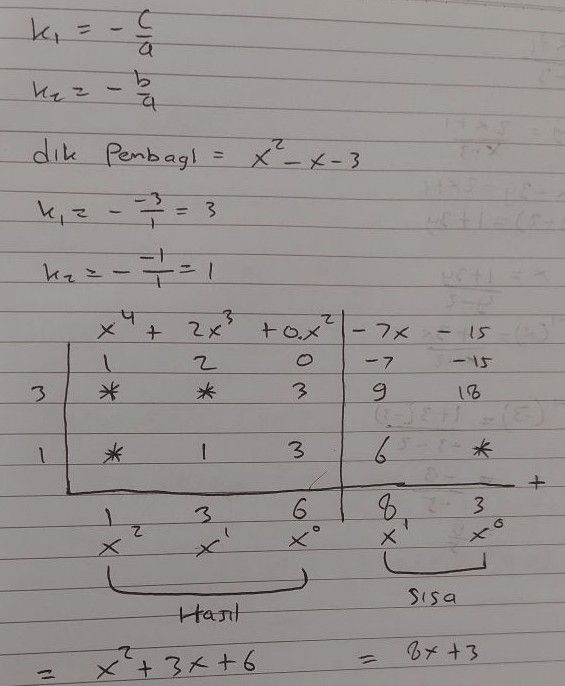 k₁ = - c/a
k₂ = - b/a
dik Pembagi = x² - x - 3
k₁ = - -3/1 = 3
k₂ = - -1/1 = 1
x⁴ + 2x³ + 0.x² | - 7x - 15
1 2 0 -7 -15
3 * * 3 9 18
1 * 1 3 6 *
+
1 3 6 8 3
x² x¹ x⁰ x¹ x⁰
Hasil Sisa
= x² + 3x + 6 = 8x + 3